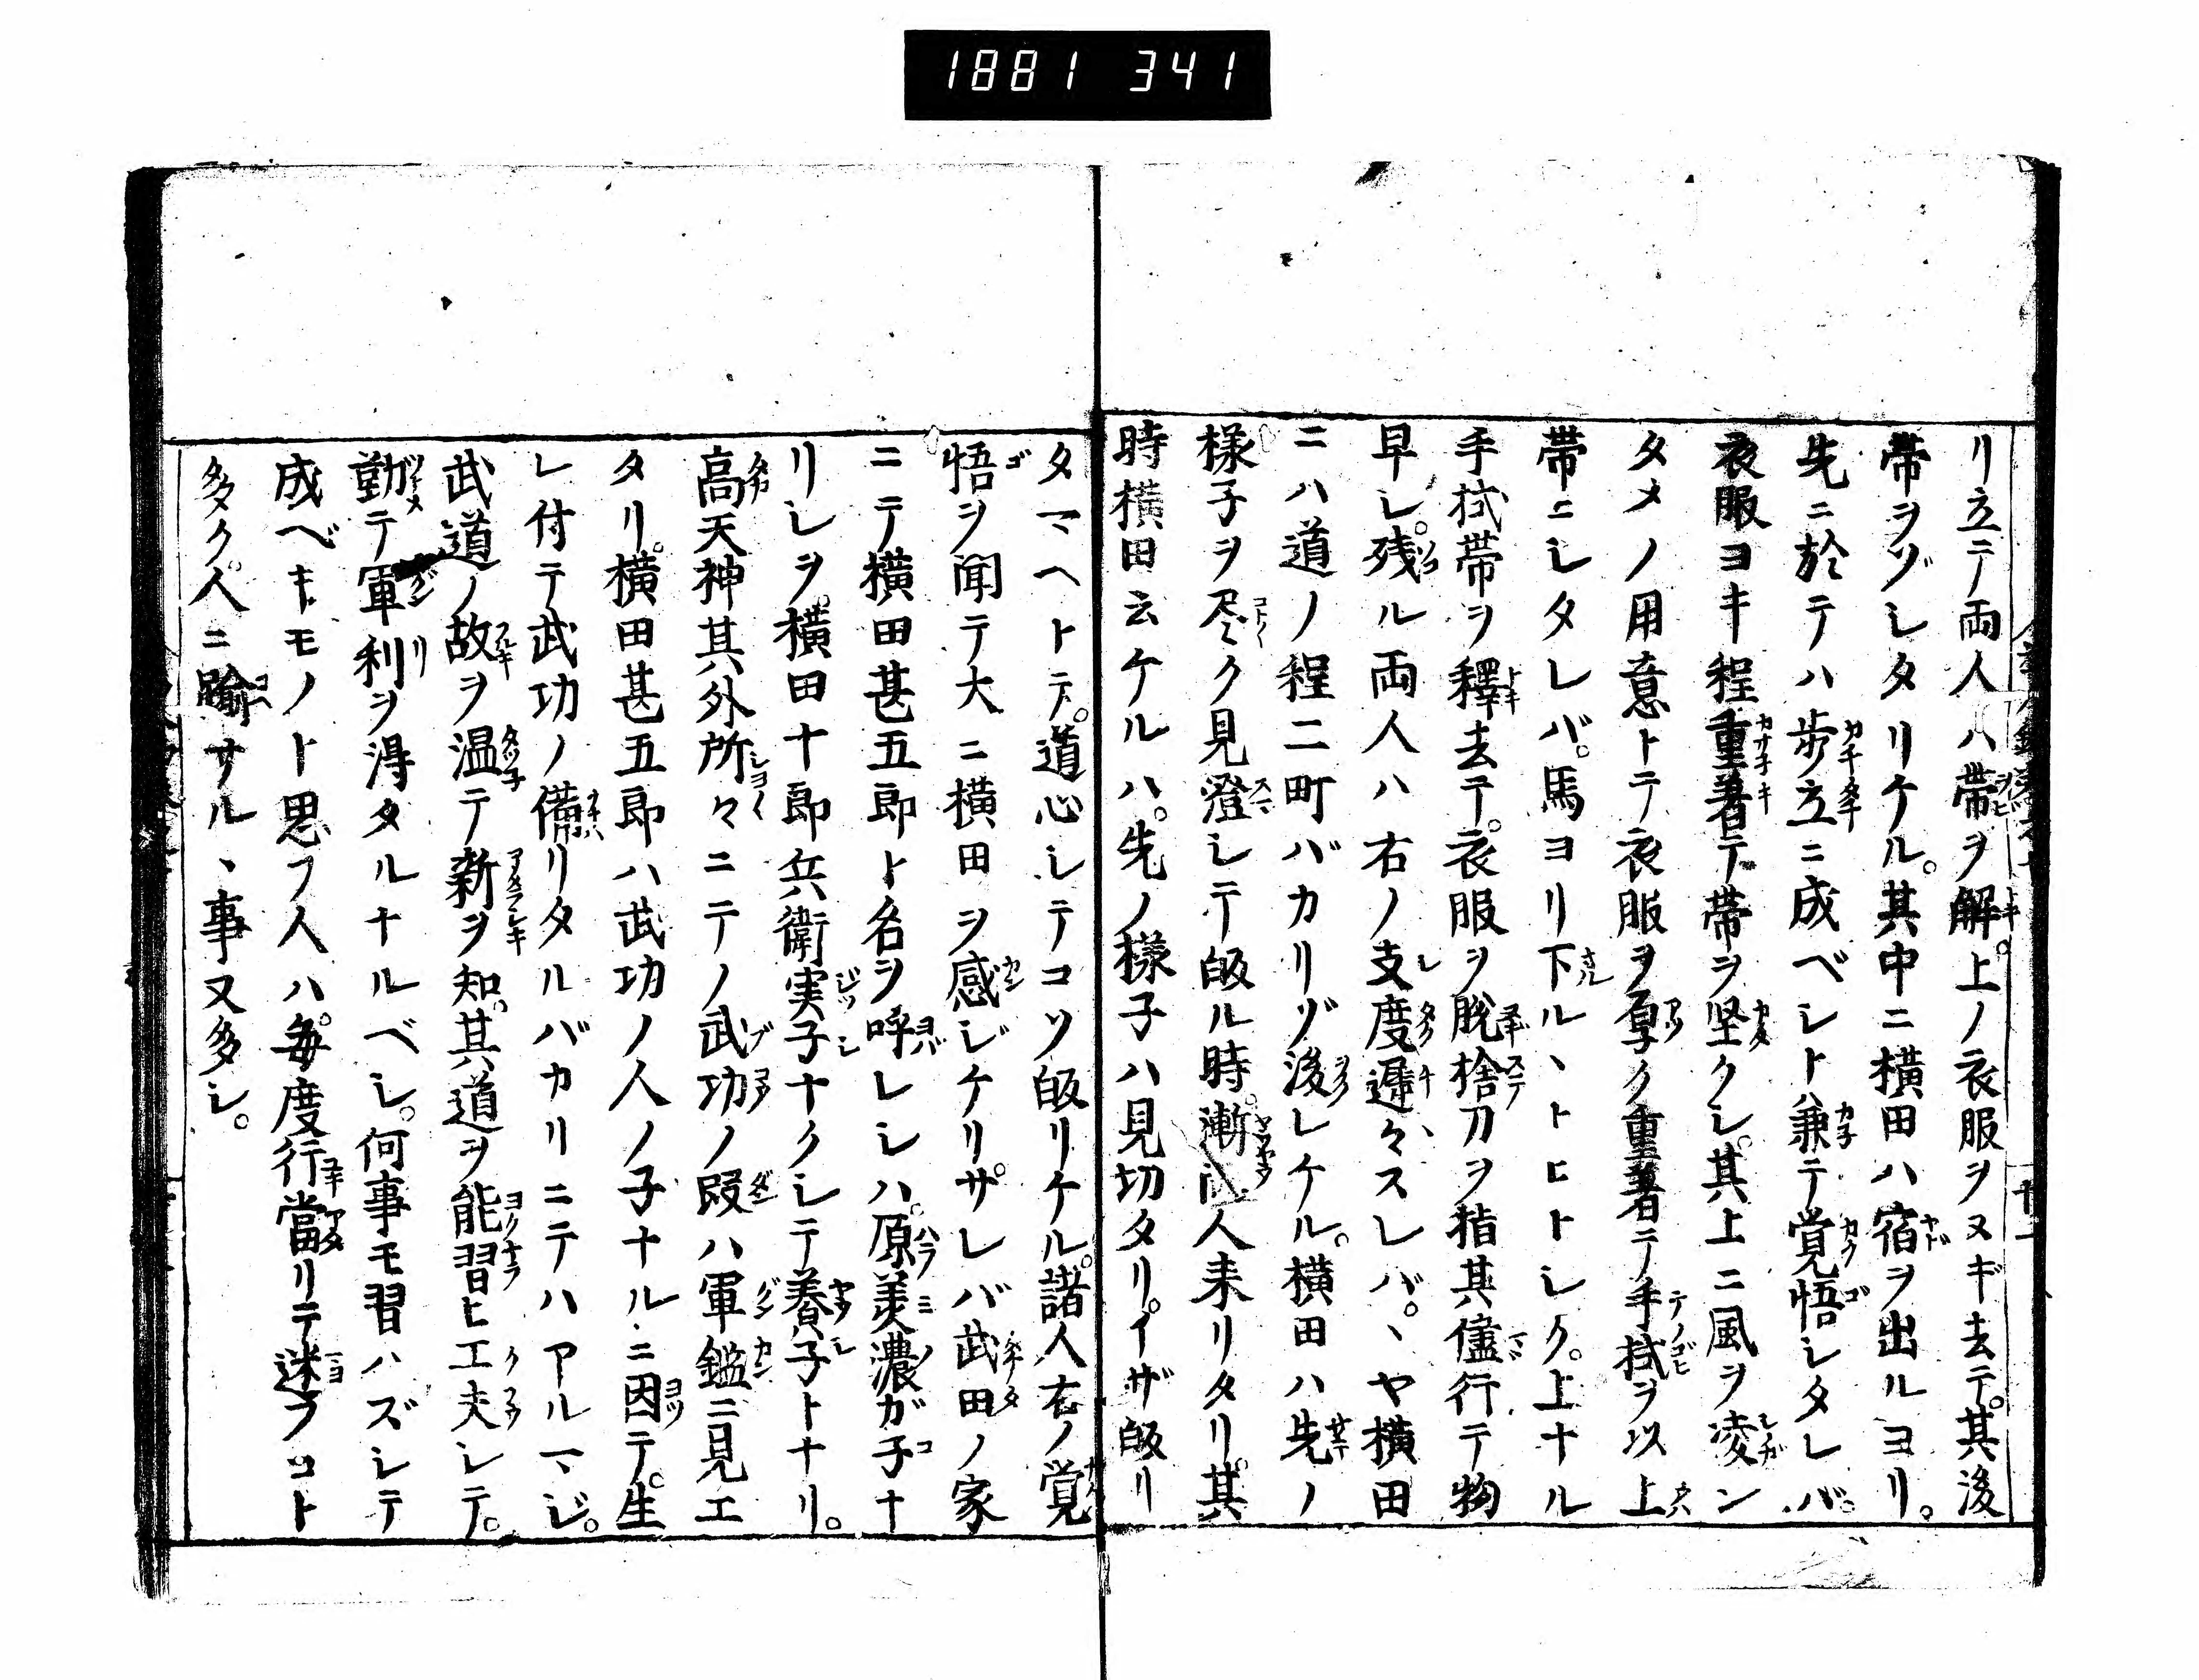 1881 341
リ立テ両人ハ帯ヲ解。上ノ衣服ヲヌギ去テ。其後
帯ヲゾシタリケル。其中ニ横田ハ宿ヲ出ルヨリ。
先ニ於テハ歩立ニ成ベシト兼テ覚悟シタレバ。
衣服ヨキ程重著テ帯ヲ堅クシ。其上ニ風ヲ凌ン
タメノ用意トテ衣服ヲ厚ク重著テ手拭ヲ以上
帯ニシタレバ。馬ヨリ下ルヽトヒトシク。上ナル
手拭帯ヲ釋去テ。衣服ヲ脱捨刀ヲ指其儘行テ物
早シ。残ル両人ハ右ノ支度遲々スレバ。ヽヤ横田
ニハ道ノ程二町バカリゾ後レケル。横田ハ先ノ
様子ヲ尽ク見澄シテ皈ル時。漸人来リタリ。其
時横田云ケルハ。先ノ様子ハ見切タリ。イザ皈リ
タマヘトテ。道心シテコソ皈リケル。諸人右ノ覚
悟ヲ聞テ大ニ横田ヲ感ジケリ。サレバ武田ノ家
ニテ横田甚五郎ト名ヲ呼レシハ。原美濃ガ子ナ
リシヲ。横田十郎兵衛実子ナクシテ養子トナリ。
高天神其外所々ニテノ武功ノ段ハ軍鑑ニ見エ
タリ。横田甚五郎ハ武功ノ人ノ子ナルニ因テ。生
レ付テ武功ノ備リタルバカリニテハアルマジ。
武道ノ故ヲ温テ新ヲ知。其道ヲ能習ヒ工夫シテ。
勤テ軍利ヲ得タルナルベシ。何事モ習ハズシテ
成ベキモノト思フ人ハ。毎度行當リテ迷フコト
多ク。人ニ踰サルヽ事又多シ。